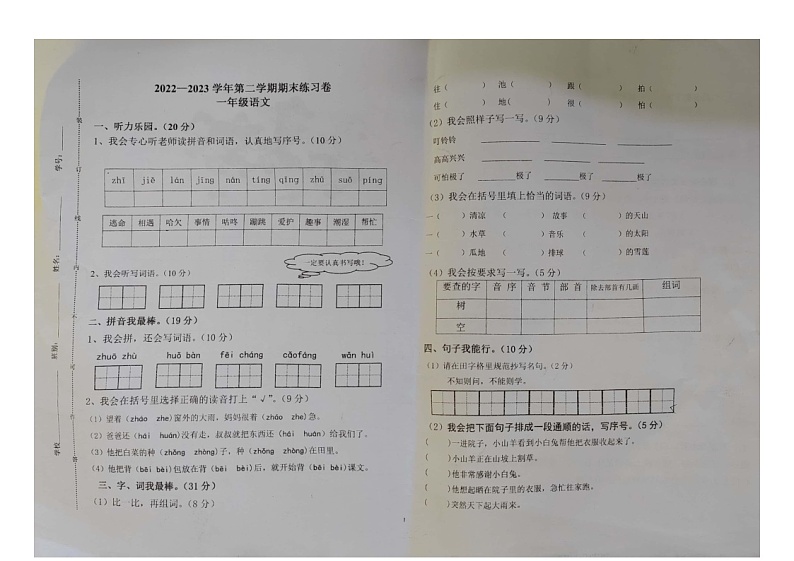 2022—2023 学年第二学期期末练习卷
一年级语文
一、听力乐园。(20 分)
1、我会专心听老师读拼音和词语，认真地写序号。(10 分)
zhǐ jiē lán jīng nán tíng qīng zhú suǒ píng
逃命 相遇 哈欠 事情 咕咚 蹦跳 爱护 趣事 潮湿 帮忙
一定要认真书写哦！
2、我会听写词语。(10 分)
二、拼音我最棒。(19 分)
1、我会拼，还会写词语。(10 分)
zhuō zhù huǒ bàn fēi cháng cāochǎng wǎn huì
2、我会在括号里选择正确的读音打上“√”。(9 分)
(1) 望着(zháo zhe)窗外的大雨，妈妈很着(zháo zhe)急。
(2) 爸爸还(hái huán)没有走，叔叔就把东西还(hái huán)给我们了。
(3) 他把白菜的种(zhǒng zhòng)子，种(zhǒng zhòng)在田里。
(4) 他把背(bēi bèi)包放在背(bēi bèi)后，就开始背(bēi bèi)课文。
三、字、词我最棒。(31 分)
(1) 比一比，再组词。(8 分)
学校
班别：
姓名：
学号：
装
订
线
往( ) 池( ) 跟( ) 拍( )
住( ) 地( ) 很( ) 怕( )
(2) 我会照样子写一写。(9 分)
叮铃铃
高高兴兴
可怕极了 极了 极了 极了
(3) 我会在括号里填上恰当的词语。(9 分)
一( )清凉 ( )故事 ( )的天山
一( )水草 ( )音乐 ( )的太阳
一( )瓜地 ( )排球 ( )的雪莲
(4) 我会按要求写一写。(5 分)
要查的字 音序 音节 部首 除去部首有几画 组词
树
空
四、句子我能行。(10 分)
(1) 请在田字格里规范抄写名句。(2 分)
不知则问，不能则学。
(2) 我会把下面句子排成一段通顺的话，写序号。(5 分)
( )一进院子，小山羊看到小白兔帮他把衣服收起来了。
( )小山羊正在山坡上割草。
( )他非常感谢小白兔。
( )他想起晒在院子里的衣服，急忙往家跑。
( )突然天下起大雨来。
1